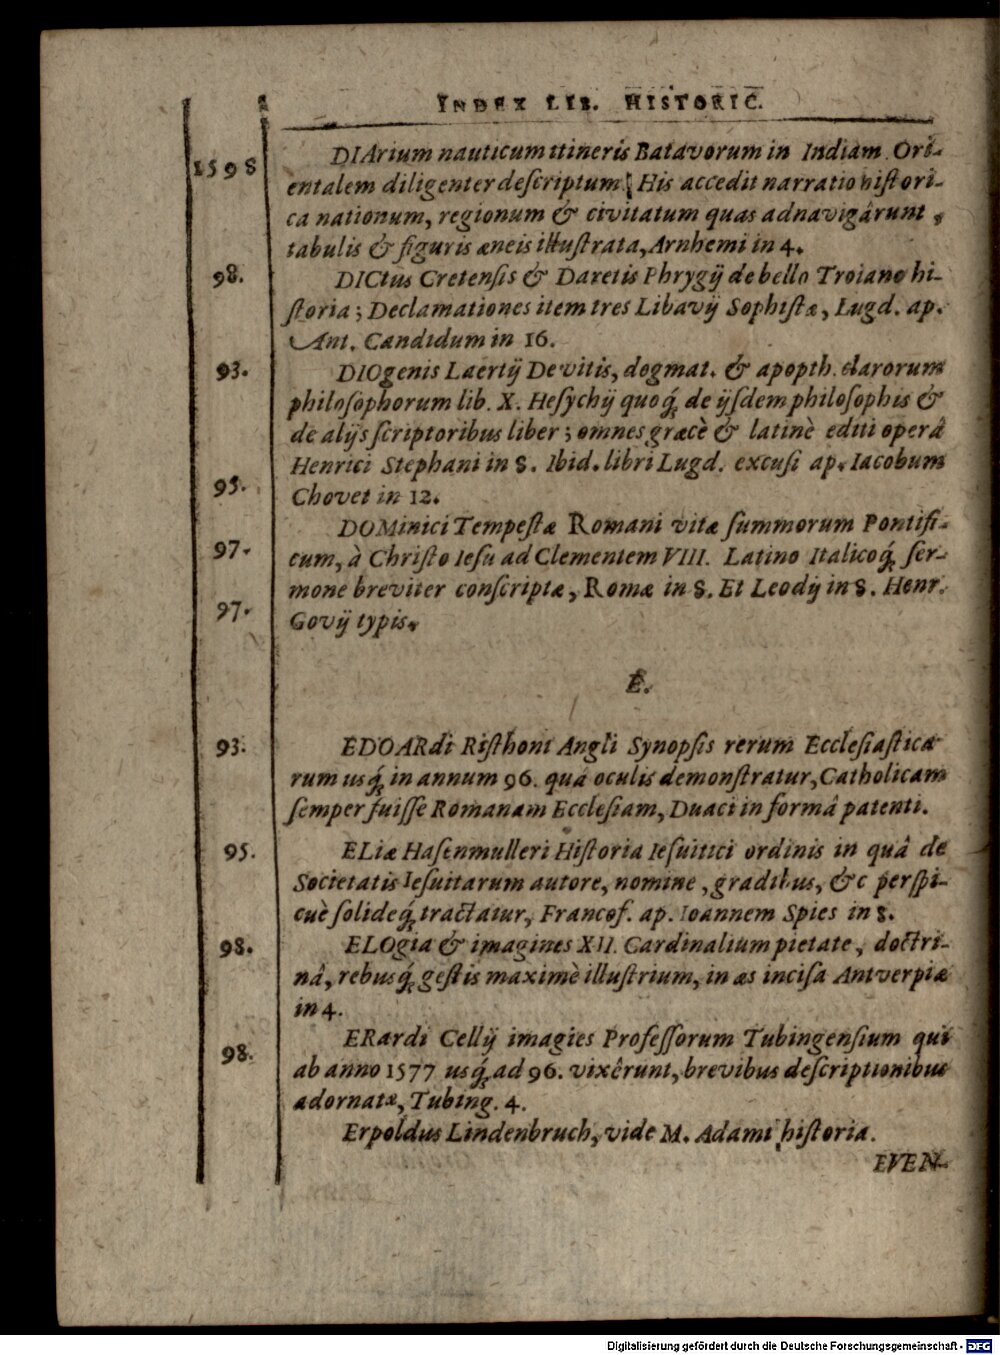 INDEX LIB. HISTORIC.
1598 DIArium nauticum itineris Batavorum in Indiam Ori-
entalem diligenter deſcriptum. His accedit narratio hiſtori-
ca nationum, regionum & civitatum quas adnavigârunt,
tabulis & figuris æneis illuſtrata, Arnhemi in 4.
98. DICtus Cretenſis & Daretis Phrygij de bello Troiano hi-
ſtoria; Declamationes item tres Libavij Sophiſtæ, Lugd. ap.
Ant. Candidum in 16.
93. DIOgenis Laertij De vitis, dogmat. & apopth. clarorum
philoſophorum lib. X. Heſychij quoq́; de ijſdem philoſophis &
de alijs ſcriptoribus liber; omnes græcè & latinè editi operâ
Henrici Stephani in 8. Ibid. libri Lugd. excuſi ap. Iacobum
95. Chovet in 12.
DOMinici Tempeſtæ Romani vitæ ſummorum Pontifi-
97. cum, à Chriſto Ieſu ad Clementem VIII. Latino Italicoq́; ſer-
mone breviter conſcriptæ, Romæ in 8. Et Leodij in 8. Henr.
97. Govij typis.
E.
93. EDOARdi Riſthoni Angli Synopſis rerum Eccleſiaſtica
rum usq́; in annum 96. qua oculis demonſtratur, Catholicam
ſemper fuiſſe Romanam Eccleſiam, Duaci in formâ patenti.
95. ELiæ Haſenmulleri Hiſtoria Ieſuitici ordinis in quâ de
Societatis Ieſuitarum autore, nomine, gradibus, &c perſpi-
cuè ſolideq́; tractatur, Francof. ap. Ioannem Spies in 8.
98. ELOgia & imagines XII. Cardinalium pietate, doctri-
nâ, rebusq́; geſtis maximè illuſtrium, in æs inciſa Antverpiæ
in 4.
98. ERardi Cellij imagies Profeſſorum Tubingenſium qui
ab anno 1577 usq́; ad 96. vixêrunt, brevibus deſcriptionibus
adornatæ, Tubing. 4.
Erpoldus Lindenbruch, vide M. Adami hiſtoria.
EVEN-
Digitalisierung gefördert durch die Deutsche Forschungsgemeinschaft - DFG